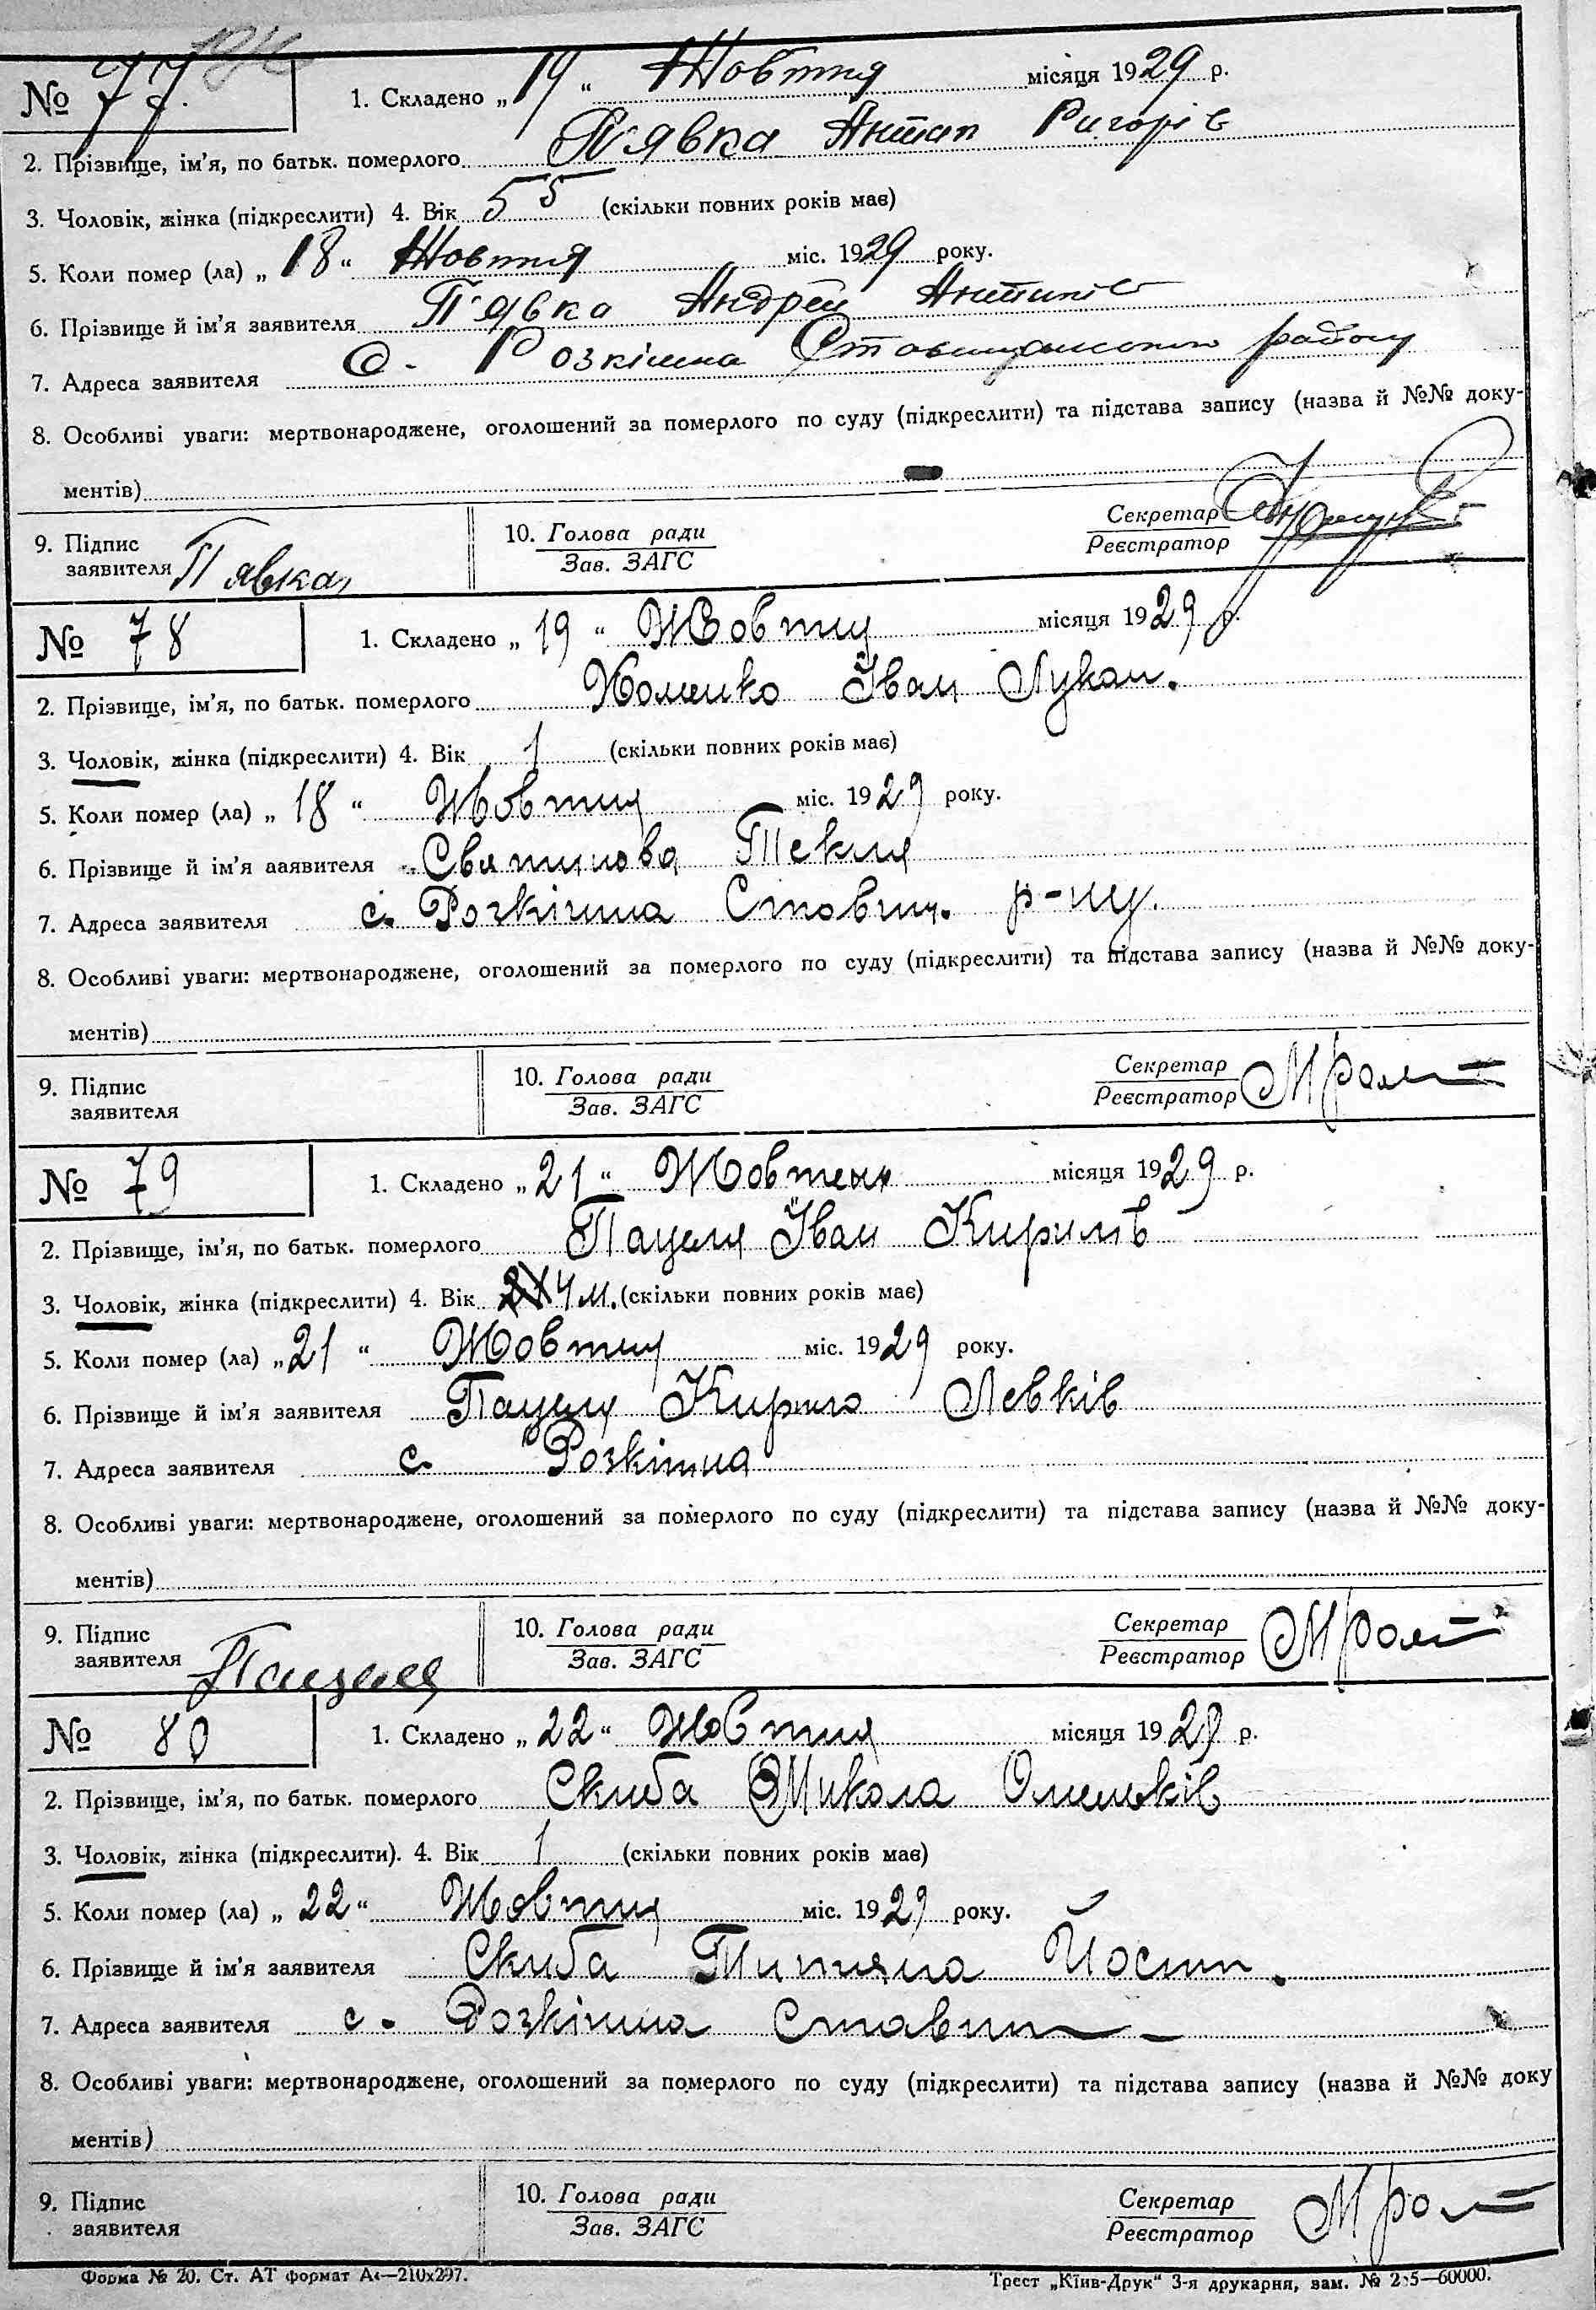 № 77
1. Складено „19“ Жовтня місяця 1929 р.
2. Прізвище, ім'я, по батьк. померлого П'явка Антип Ригорів
3. Чоловік, жінка (підкреслити) 4. Вік 55 (скільки повних років має)
5. Коли помер (ла) „18“ Жовтня міс. 1929 року.
6. Прізвище й ім'я заявителя П'явка Андрей Антипів
7. Адреса заявителя с. Розкішна Ставищанського району
8. Особливі уваги: мертвонароджене, оголошений за померлого по суду (підкреслити) та підстава запису (назва й №№ доку-
ментів)
9. Підпис заявителя Пявка 10. Голова ради Зав. ЗАГС Секретар Реєстратор
№ 78
1. Складено „19“ Жовтня місяця 1929 р.
2. Прізвище, ім'я, по батьк. померлого Хоменко Іван Лукан.
3. Чоловік, жінка (підкреслити) 4. Вік 1 (скільки повних років має)
5. Коли помер (ла) „18“ Жовтня міс. 1929 року.
6. Прізвище й ім'я ааявителя Текля
7. Адреса заявителя с. Розкішна Ставищ. р-ну.
8. Особливі уваги: мертвонароджене, оголошений за померлого по суду (підкреслити) та підстава запису (назва й №№ доку-
ментів)
9. Підпис заявителя 10. Голова ради Зав. ЗАГС Секретар Реєстратор
№ 79
1. Складено „21“ Жовтень місяця 1929 р.
2. Прізвище, ім'я, по батьк. померлого Пацеля Іван Кирилів
3. Чоловік, жінка (підкреслити) 4. Вік 4 м. (скільки повних років має)
5. Коли помер (ла) „21“ Жовтня міс. 1929 року.
6. Прізвище й ім'я заявителя Пацеля Кирило Левків
7. Адреса заявителя с. Розкішна
8. Особливі уваги: мертвонароджене, оголошений за померлого по суду (підкреслити) та підстава запису (назва й №№ доку-
ментів)
9. Підпис заявителя Пацеля 10. Голова ради Зав. ЗАГС Секретар Реєстратор
№ 80
1. Складено „22“ Жовтня місяця 1929 р.
2. Прізвище, ім'я, по батьк. померлого Скиба Микола Омельків
3. Чоловік, жінка (підкреслити). 4. Вік 1 (скільки повних років має)
5. Коли помер (ла) „22“ Жовтня міс. 1929 року.
6. Прізвище й ім'я заявителя Скиба Титяна Йосип.
7. Адреса заявителя с. Розкішна Ставищ
8. Особливі уваги: мертвонароджене, оголошений за померлого по суду (підкреслити) та підстава запису (назва й №№ доку
ментів)
9. Підпис заявителя 10. Голова ради Зав. ЗАГС Секретар Реєстратор
Форма № 20. Ст. АТ формат А4—210х297. Трест „Київ-Друк“ 3-я друкарня, зам. №